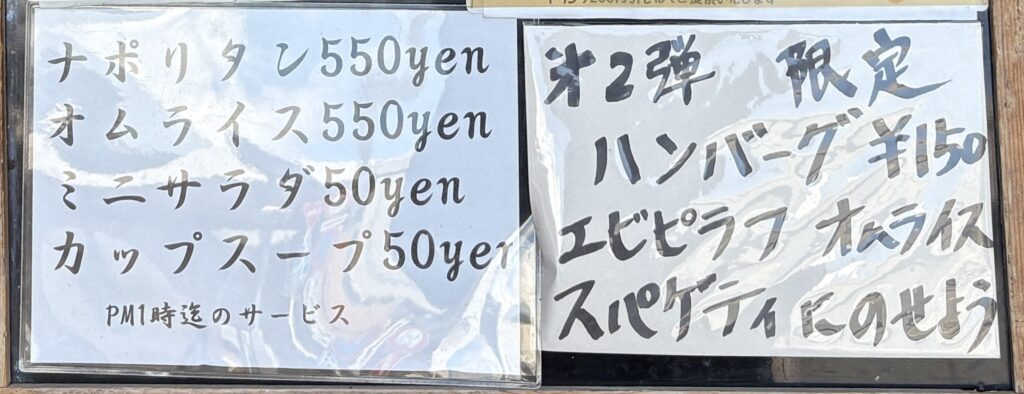 ナポリタン550yen
オムライス550yen
ミニサラダ50yen
カップスープ50yen
PM1時迄のサービス
才2弾 限定
ハンバーグ ¥150
エビピラフ オムライス
スパゲティにのせよう